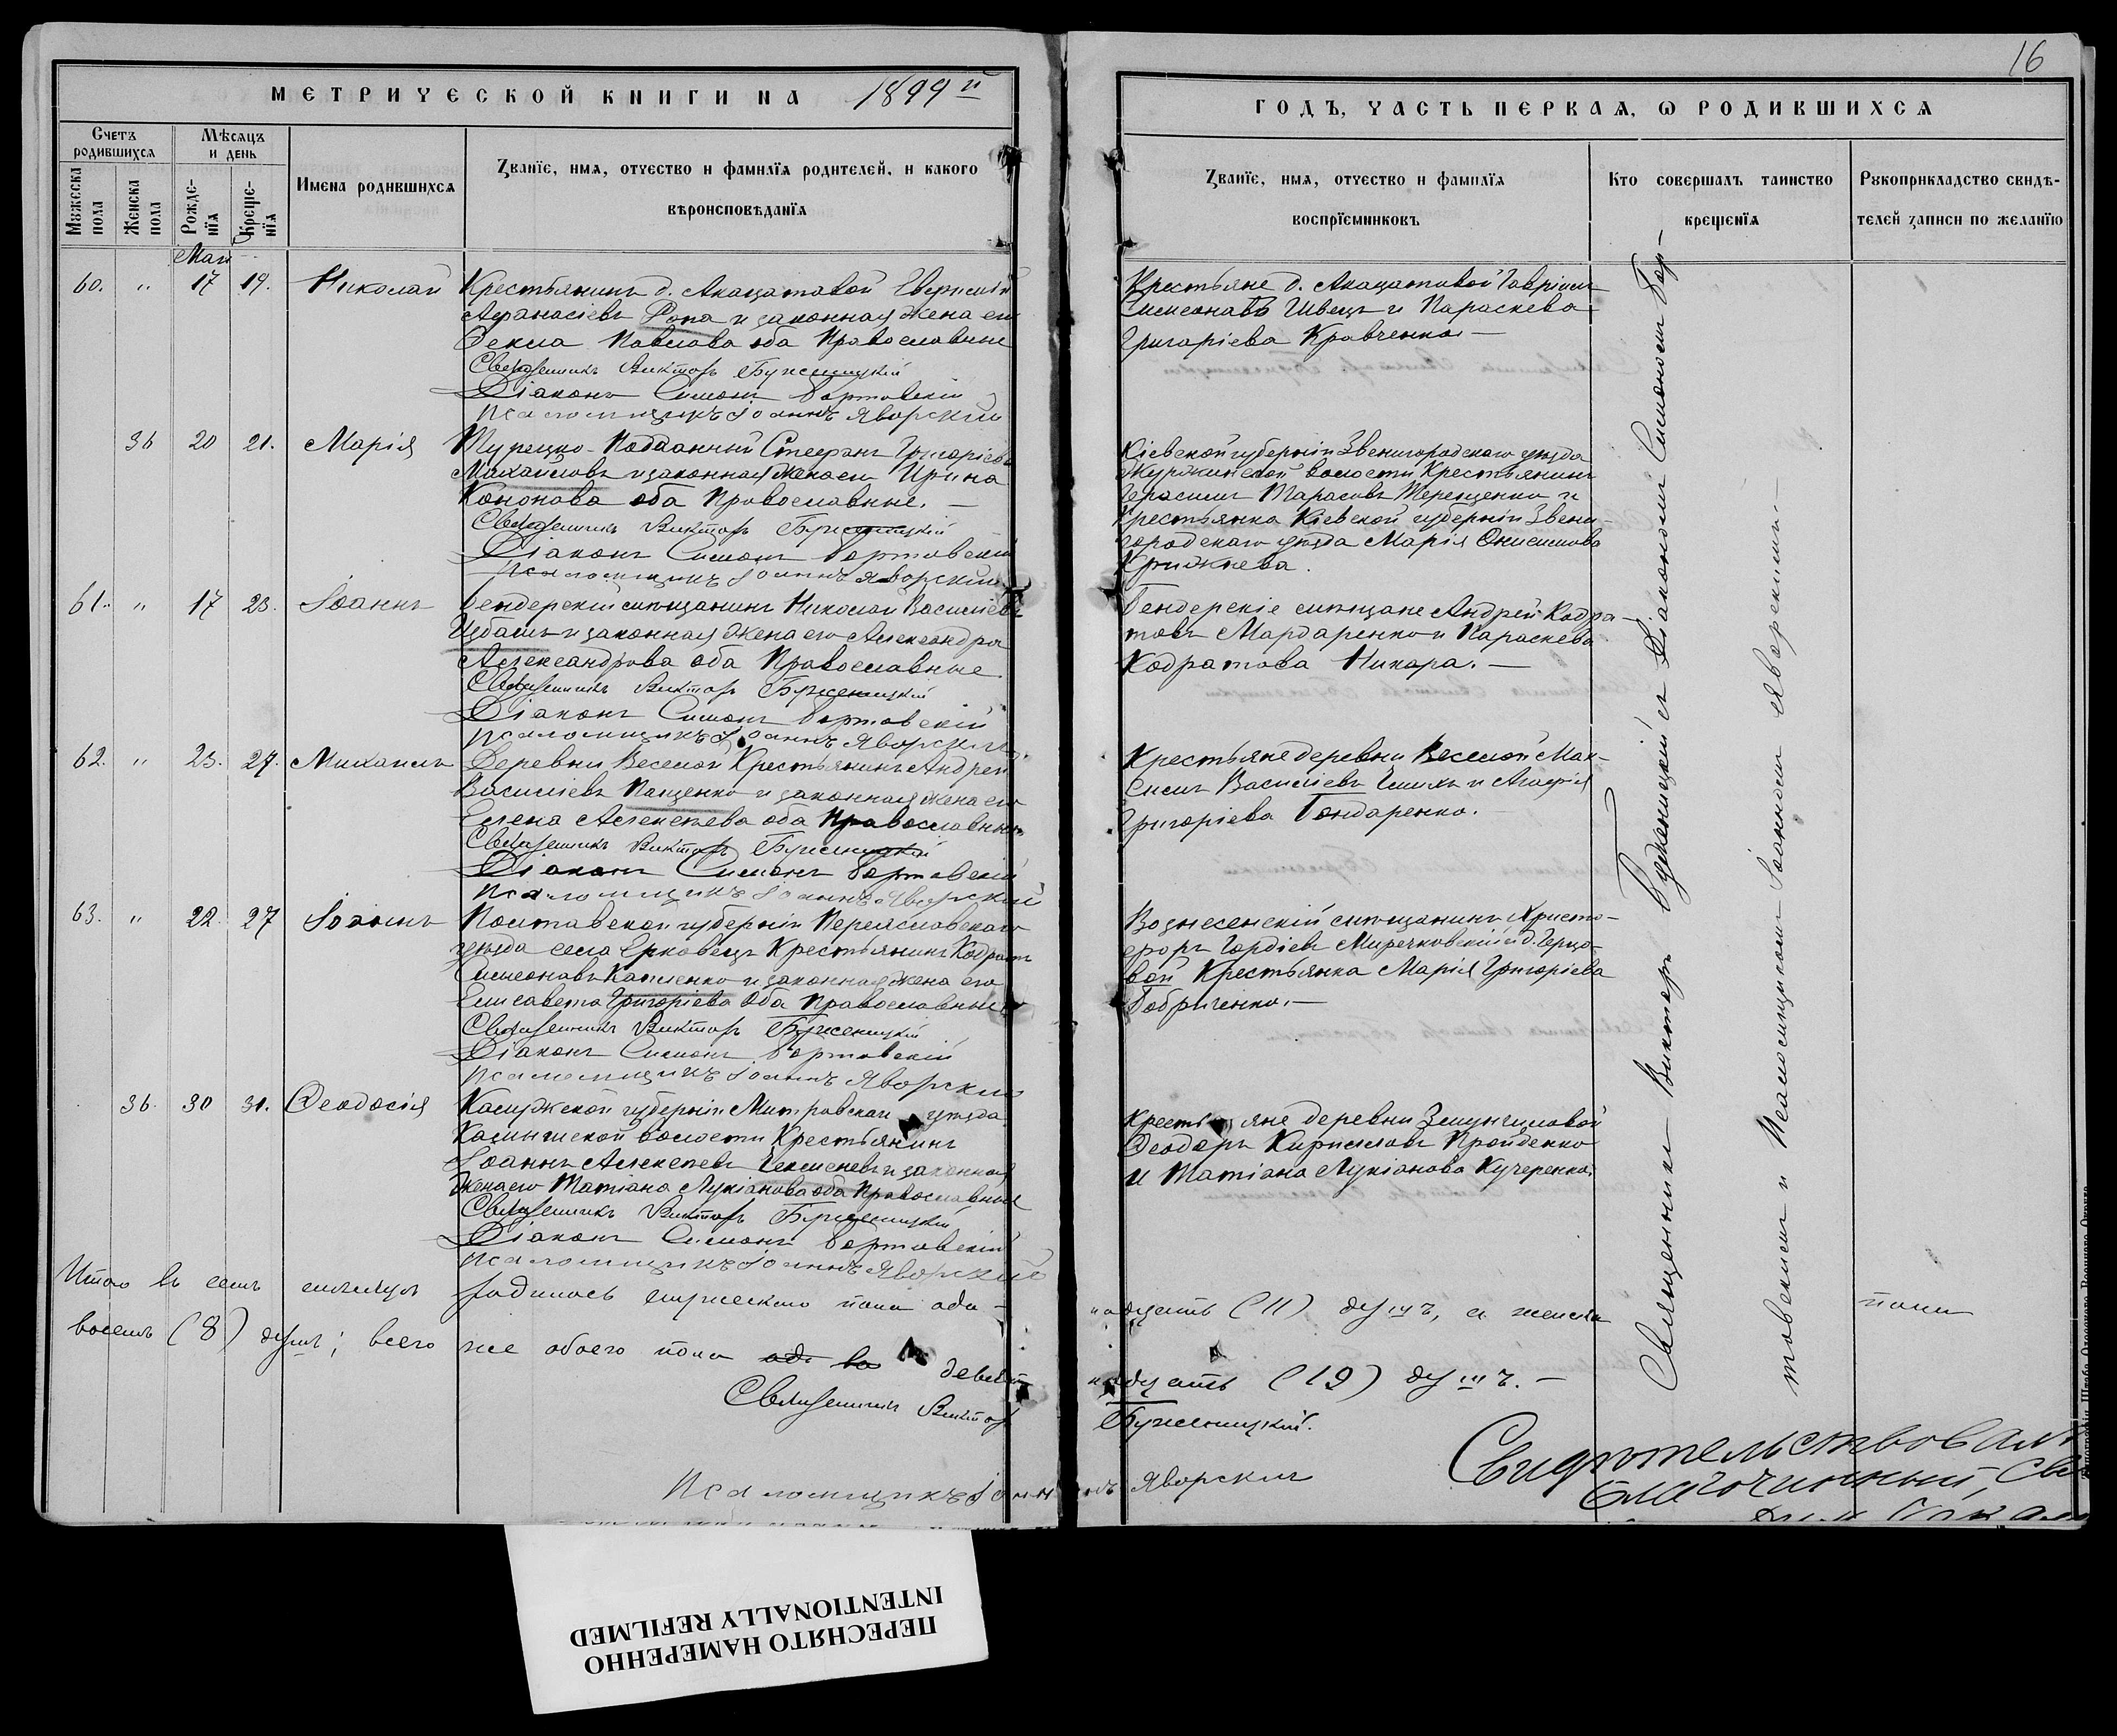 16
МЕТРИЧЕСКОЙ КНИГИ НА 1899й
ГОДЪ, ЧАСТЬ ПЕРВАЯ, Ѡ РОДИВШИХСЯ
Счетъ родившихся
Мѣсяцъ и день
Мужеска пола
Женска пола
Рожде-нїя
Креще-нїя
Имена родившихся
Званїе, имя, отчество и фамилїя родителей, и какого
вѣроисповѣданїя
Званїе, имя, отчество и фамилїя
воспрїемниковъ
Кто совершалъ таинство
крещенїя
Рукоприкладство свидѣ-
телей записи по желанїю
Май
60. " 17 19. Николай
Крестьянинъ д. Акацатовой
Аѳанасіевъ Ропа и законная жена его
Ѳекла Павлова оба Православные
Священникъ Викторъ Буженицкій
Діаконъ Симонъ Бортовскій
Псаломщикъ Іоаннъ Яворскій
Крестьяне д. Акацатовой Гавріилъ
Симеоновъ Швецъ и Параскева
Григоріева Кравченко. —
36 20 21. Марія
Турецко-Подданный Стефанъ Григоріевъ
Михайловъ и законная жена его Ирина
Кононова оба Православные. —
Священникъ Викторъ Буженицкій
Діаконъ Симонъ Бортовскій
Псаломщикъ Іоаннъ Яворскій
Кіевской губерніи Звенигородскаго уѣзда
волости Крестьянинъ
Герасимъ Тарасовъ Терещенко и
Крестьянка Кіевской губерніи Звени-
городскаго уѣзда Марія Онисимова
61. " 17 23. Іоаннъ
Бендерскій мѣщанинъ Николай Василіевъ
Избашъ и законная жена его Александра
Александрова оба Православные
Священникъ Викторъ Буженицкій
Діаконъ Симонъ Бортовскій
Псаломщикъ Іоаннъ Яворскій
Бендерскіе мѣщане Андрей Кодра-
товъ Мардаренко и Параскева
Кодратова Никора. —
62. " 23. 27. Михаилъ
Деревни Веселой Крестьянинъ Андрей
Василіевъ Пащенко и законная жена его
Елена Алексѣева оба Православные
Священникъ Викторъ Буженицкій
Діаконъ Симонъ Бортовскій
Псаломщикъ Іоаннъ Яворскій
Крестьяне деревни Веселой Мак-
симъ Василіевъ и Агафія
Григоріева Бондаренко.
63. " 22. 27 Іоаннъ
Полтавской губерніи Переяславскаго
уѣзда села Ерковецъ Крестьянинъ Кодратъ
Симеоновъ Катленко и законная жена его
Елисавета Григоріева оба Православные
Священникъ Викторъ Буженицкій
Діаконъ Симонъ Бортовскій
Псаломщикъ Іоаннъ Яворскій
Вознесенскій мѣщанинъ Христо-
форъ Гордіевъ и д.
вой Крестьянка Марія Григоріева
Бобриченко. —
36. 30 31. Ѳеодосія
Калужской губерніи уѣзда
волости Крестьянинъ
Іоаннъ Алексѣевъ и законная
жена его Татіана Лукіанова оба Православные
Священникъ Викторъ Буженицкій
Діаконъ Симонъ Бортовскій
Псаломщикъ Іоаннъ Яворскій
Крестьяне деревни
Ѳеодоръ Кирилловъ Пройденко
и Татіана Лукіанова Кучеренко.
Священникъ Викторъ Буженицкій съ Діакономъ Симономъ Бор-
товскимъ и Псаломщикомъ Іоанномъ Яворскимъ. —
Итого въ семъ мѣсяцѣ родилось мужескаго пола оди-
надцать (11) душъ, а женска пола
восемь (8) душъ; всего же обоего пола девят-
надцать (19) душъ. —
Священникъ Викторъ Буженицкій.
Псаломщикъ Іоаннъ Яворскій
Свидѣтельствовалъ
Благочинный, Св
ПЕРЕСНЯТО НАМЕРЕННО
INTENTIONALLY REFILMED